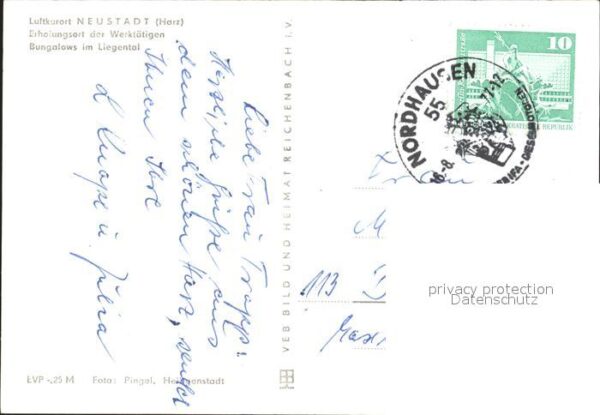 Luftkurort NEUSTADT (Harz)
Erholungsort der Werktätigen
Bungalows im Liegental
Liebe Frau Trapp!
Herzliche Grüße aus
dem schönen Harz, sendet
Ihnen Ihre
L. Knape u. Julia
EVP -,25 M Foto: Pingel, Heiligenstadt
VEB BILD UND HEIMAT REICHENBACH I.V.
10
DEMOKRATISCHE REPUBLIK
NORDHAUSEN
55
Frau
M
113 D
privacy protection
Datenschutz